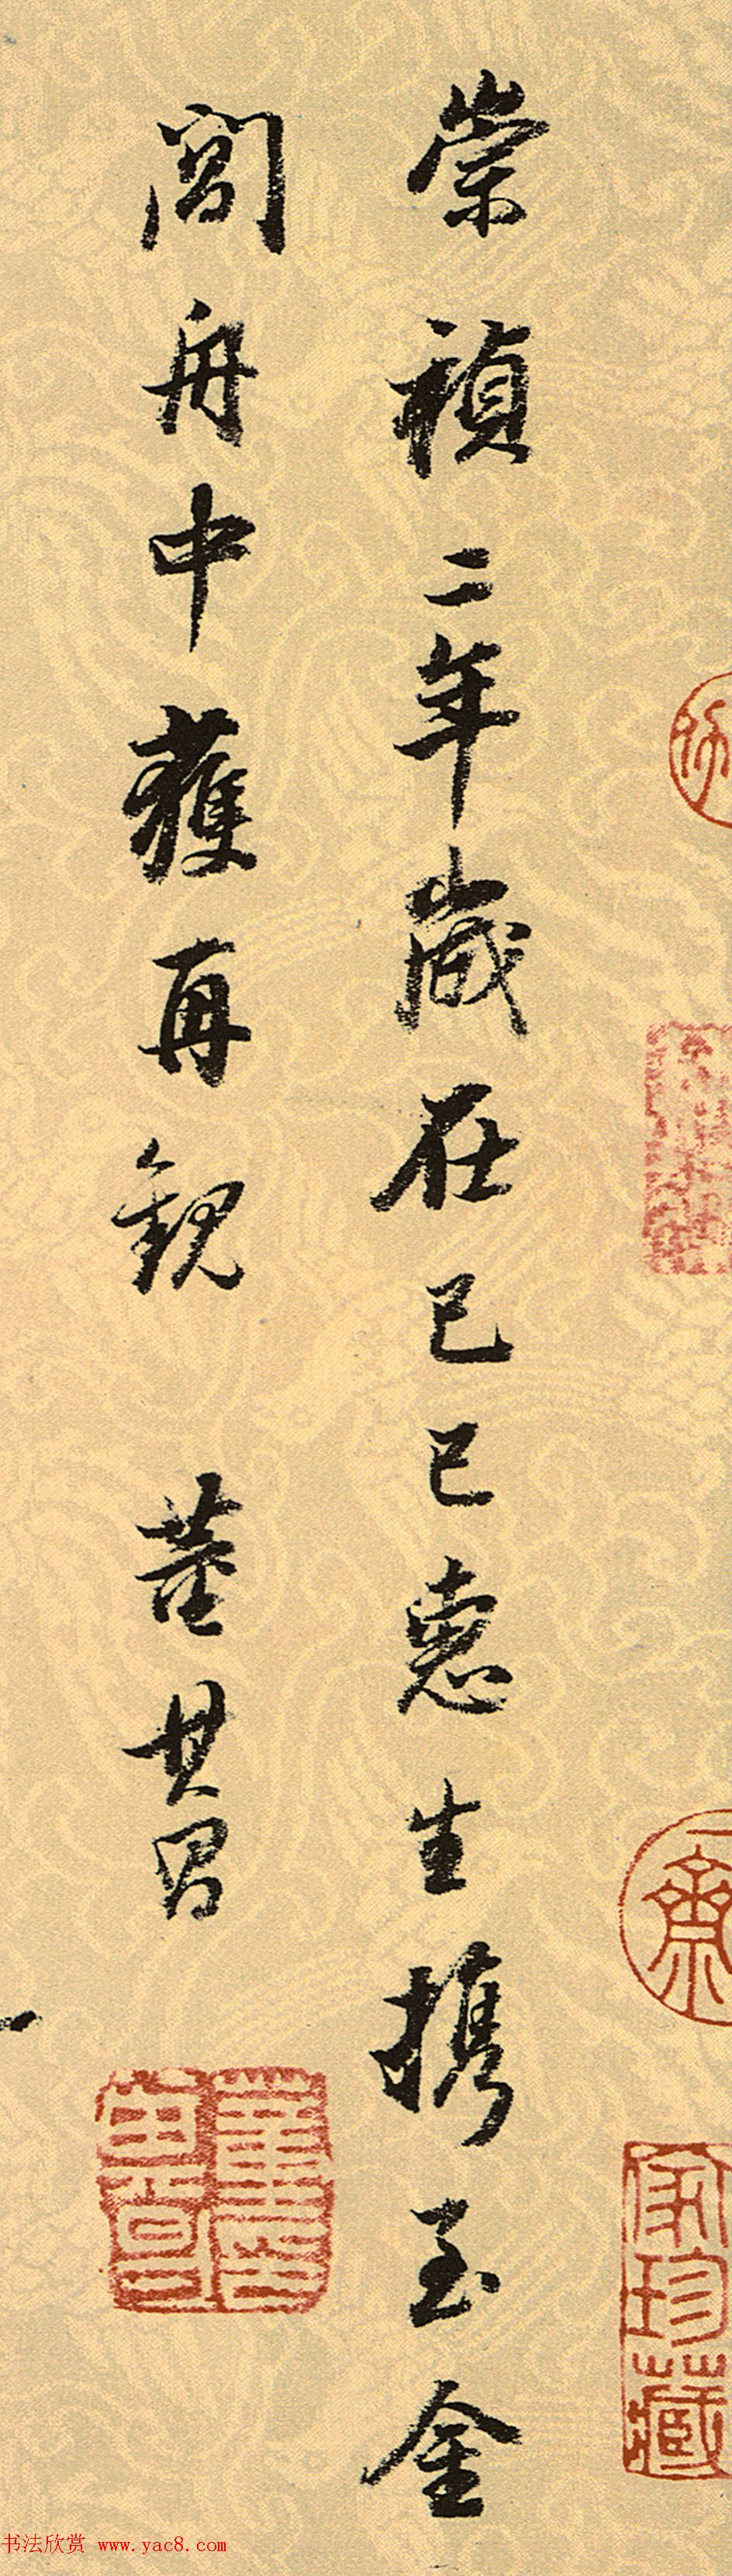 崇禎二年歲在己巳惠生携至金
閶舟中獲再觀 董其昌
齋
家珍藏
书法欣赏 www.yac8.com